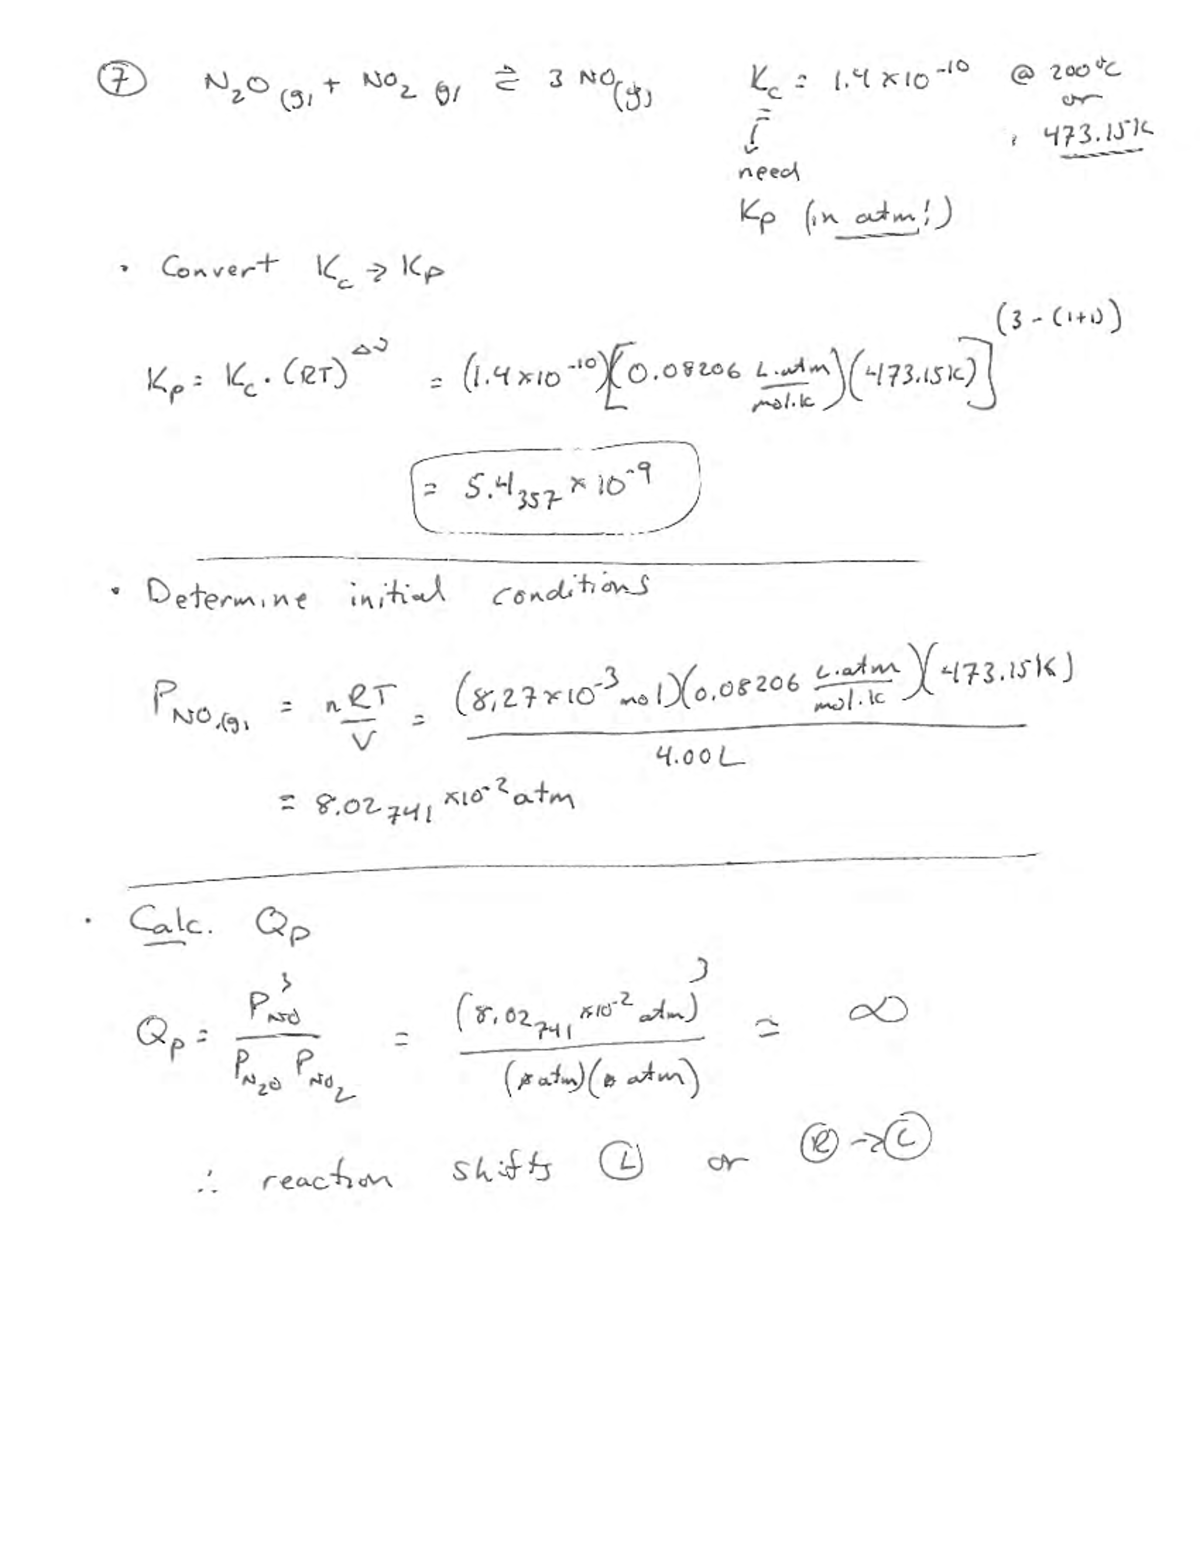 ⑦ N₂O(g) + NO₂(g) ⇌ 3 NO(g) Kc = 1.4×10⁻¹⁰ @ 200°C
or
473.15K
need
Kp (in atm!)
• Convert Kc → Kp
Kp = Kc · (RT)^Δν = (1.4×10⁻¹⁰)[(0.08206 L·atm/mol·K)(473.15K)]^(3-(1+1))
= 5.4₃₅₇ × 10⁻⁹
• Determine initial conditions
P_NO(g) = nRT/V = (8.27×10⁻³ mol)(0.08206 L·atm/mol·K)(473.15K)/4.00L
= 8.02₇₄₁ ×10⁻² atm
• Calc. Qp
Qp = P_NO³/(P_N₂O P_NO₂) = (8.02₇₄₁ ×10⁻² atm)³/(atm)(atm) ≃ ∞
∴ reaction shifts Ⓛ or Ⓡ→Ⓛ